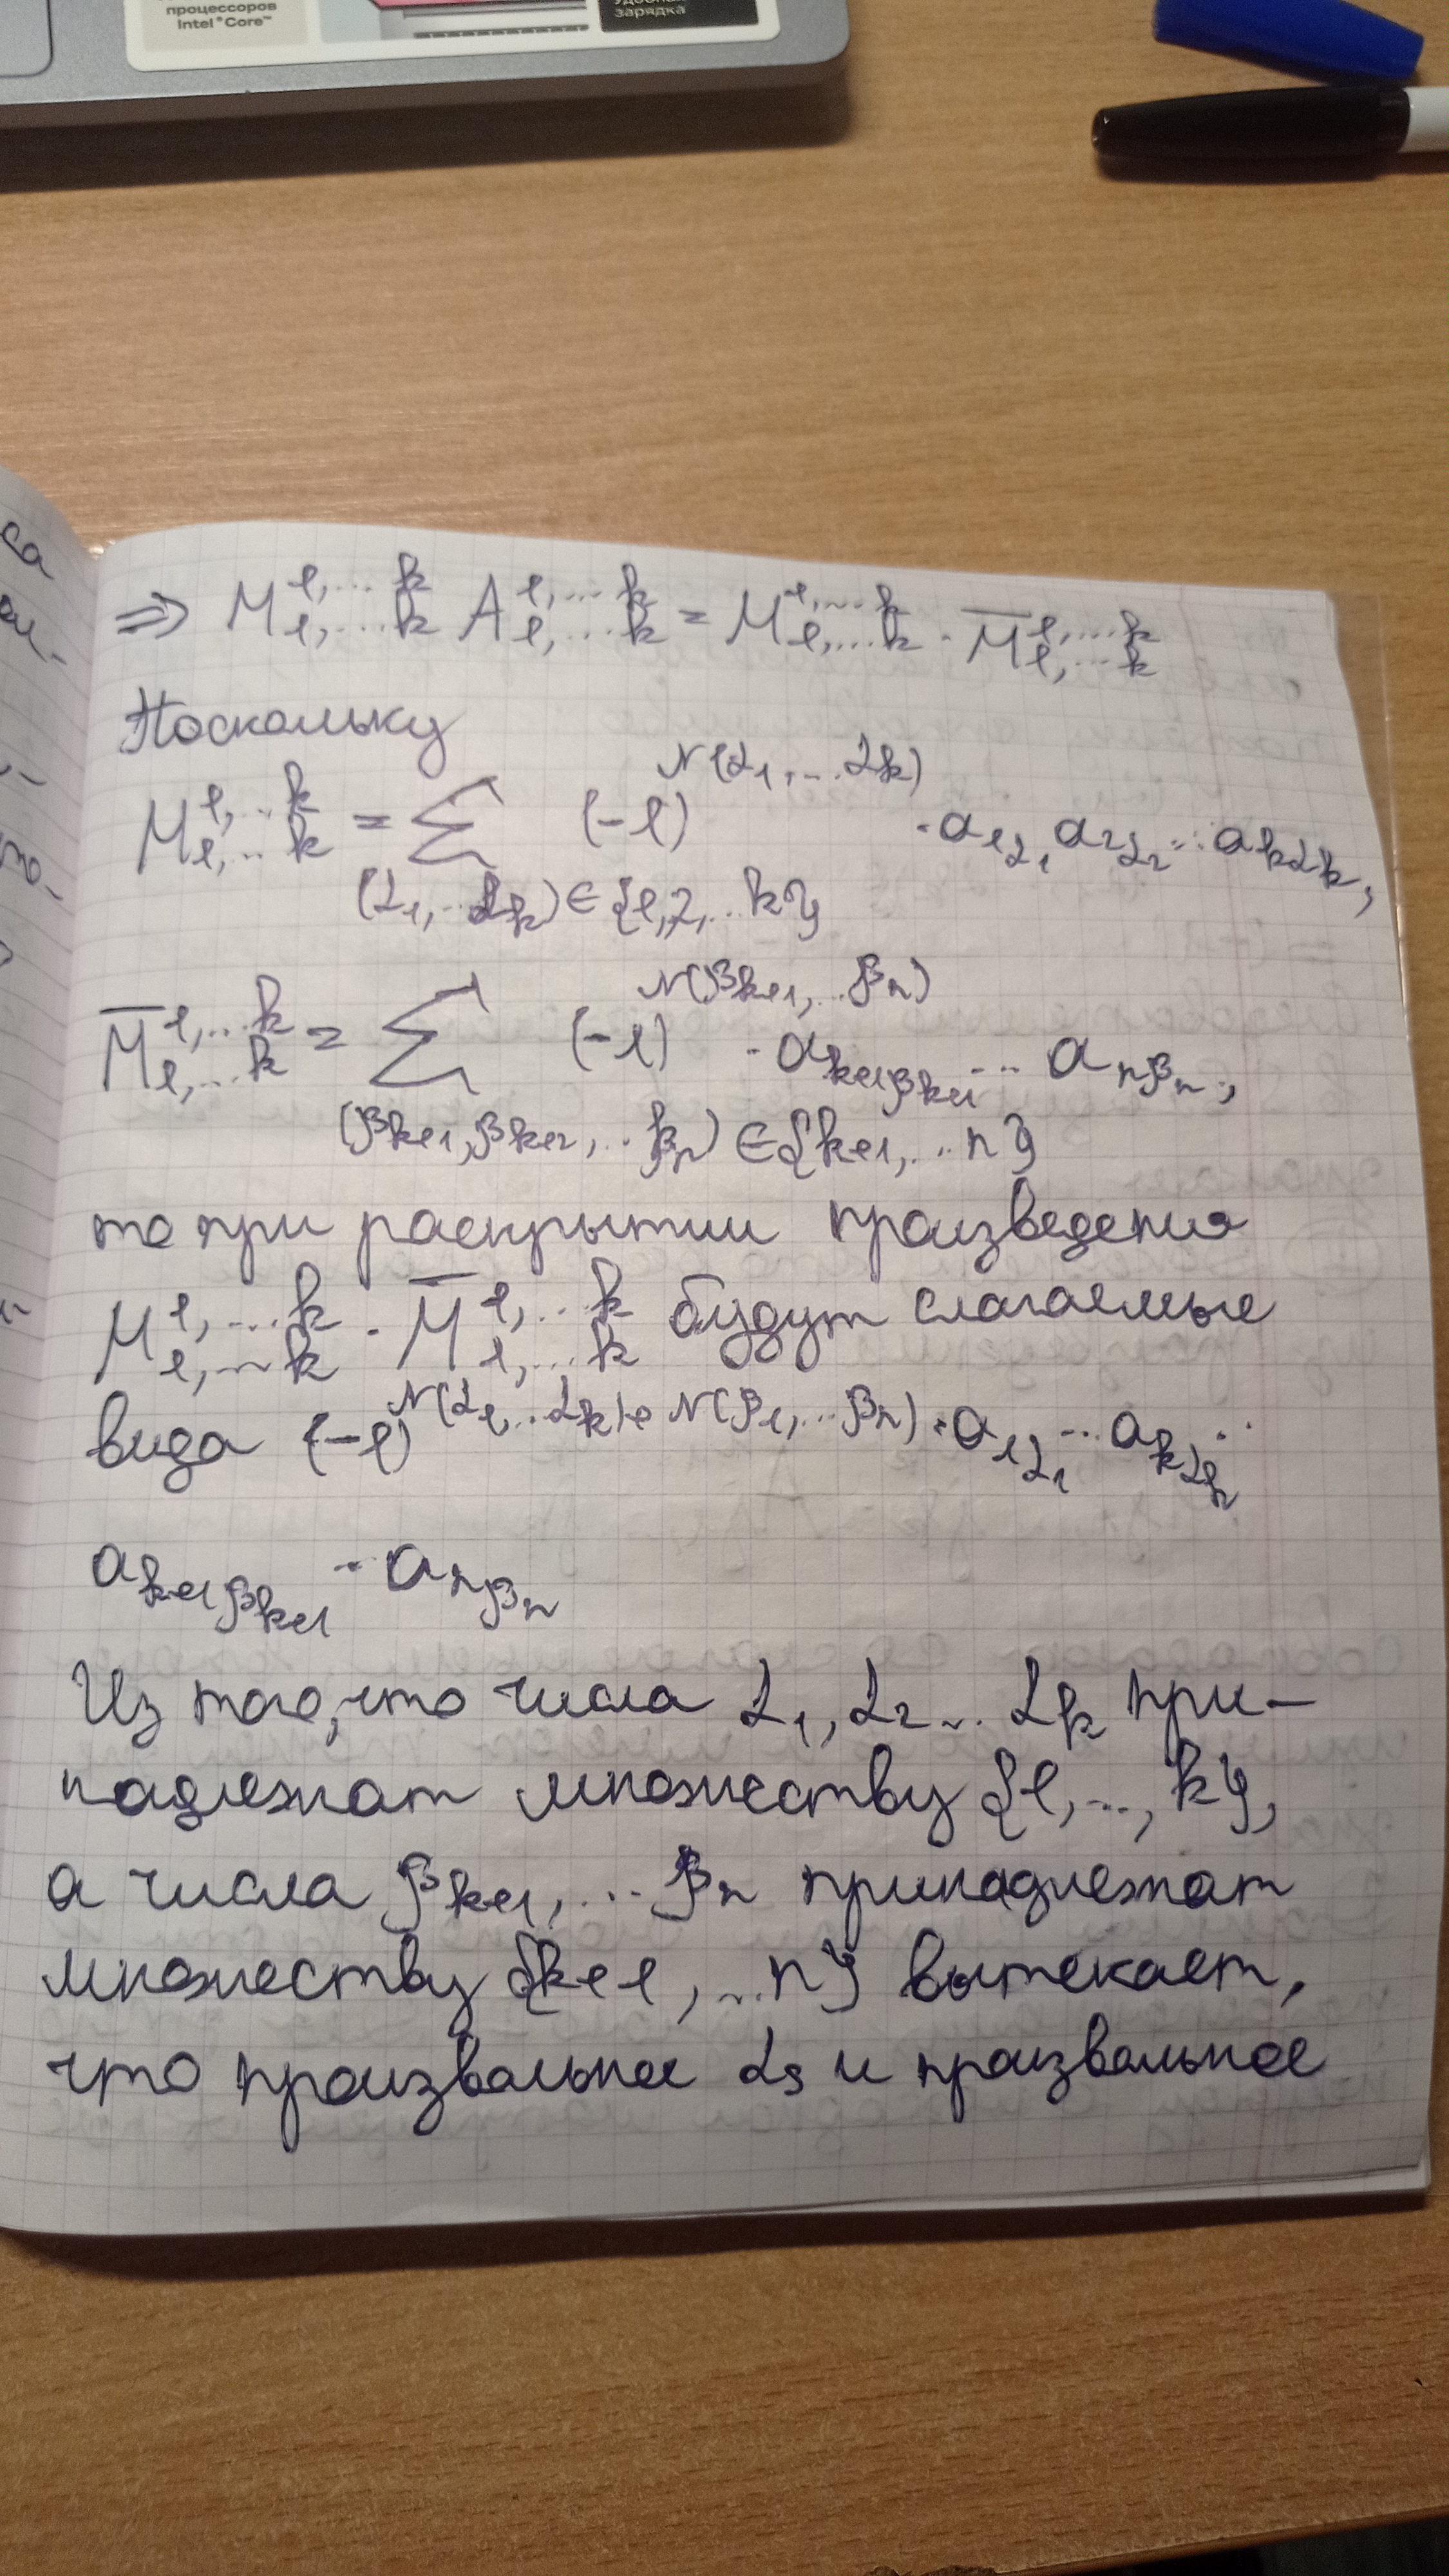 процессоров
Intel® Core™
зарядка
⇒ M^{1,...k}_{1,...k} A^{1,...k}_{1,...k} = M^{1,...k}_{1,...k} · M̅^{1,...k}_{1,...k}
Поскольку
M^{1,...k}_{1,...k} = ∑_{(α_1,...α_k)∈{1,2,...k}} (-1)^{N(α_1,...α_k)} · a_{1α_1} a_{2α_2} ... a_{kα_k},
M̅^{1,...k}_{1,...k} = ∑_{(β_{k+1},β_{k+2},...β_n)∈{k+1,...n}} (-1)^{N(β_{k+1},...β_n)} · a_{k+1β_{k+1}} ... a_{nβ_n},
то при раскрытии произведения
M^{1,...k}_{1,...k} · M̅^{1,...k}_{1,...k} будут слагаемые
вида (-1)^{N(α_1,...α_k)+N(β_1,...β_n)} · a_{1α_1} ... a_{kα_k} ·
a_{k+1β_{k+1}} ... a_{nβ_n}
Из того, что числа α_1, α_2 ... α_k при-
надлежат множеству {1,...,k},
а числа β_{k+1},...β_n принадлежат
множеству {k+1,...n} вытекает,
что произвольное α_s и произвольное